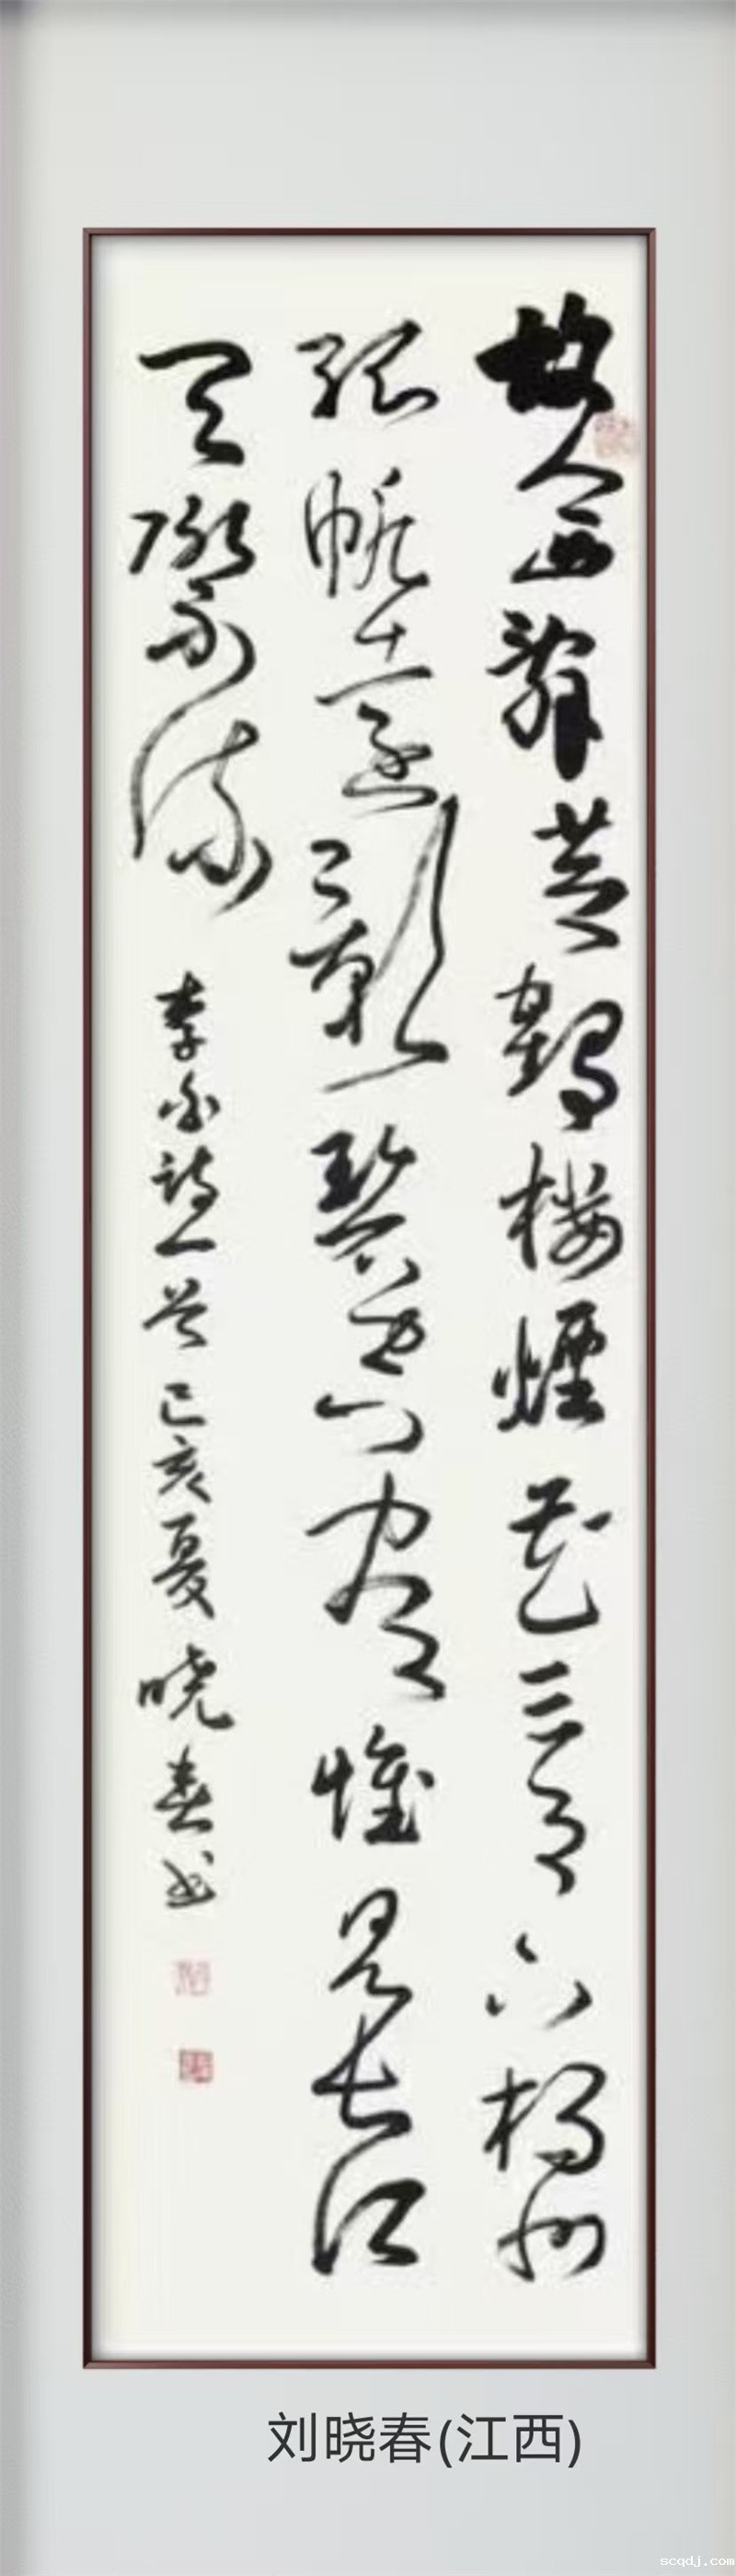 故人西辭黄鶴楼煙花三月下揚州
孤帆遠影碧空盡惟見長江
天際流 李白詩一首 己亥夏 晓春书
刘晓春(江西)
scqdj.com